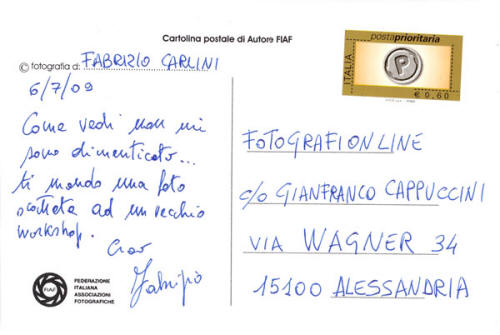 Cartolina postale di Autore FIAF
© fotografia di: FABRIZIO CARLINI
6/7/09
Come vedi non mi
sono dimenticato...
ti mando una foto
scattata ad un vecchio
workshop.
Ciao
Fabrizio
FIAF
FEDERAZIONE
ITALIANA
ASSOCIAZIONI
FOTOGRAFICHE
postaprioritaria
ITALIA
P
€ 0,60
FOTOGRAFIONLINE
c/o GIANFRANCO CAPPUCCINI
VIA WAGNER 34
15100 ALESSANDRIA